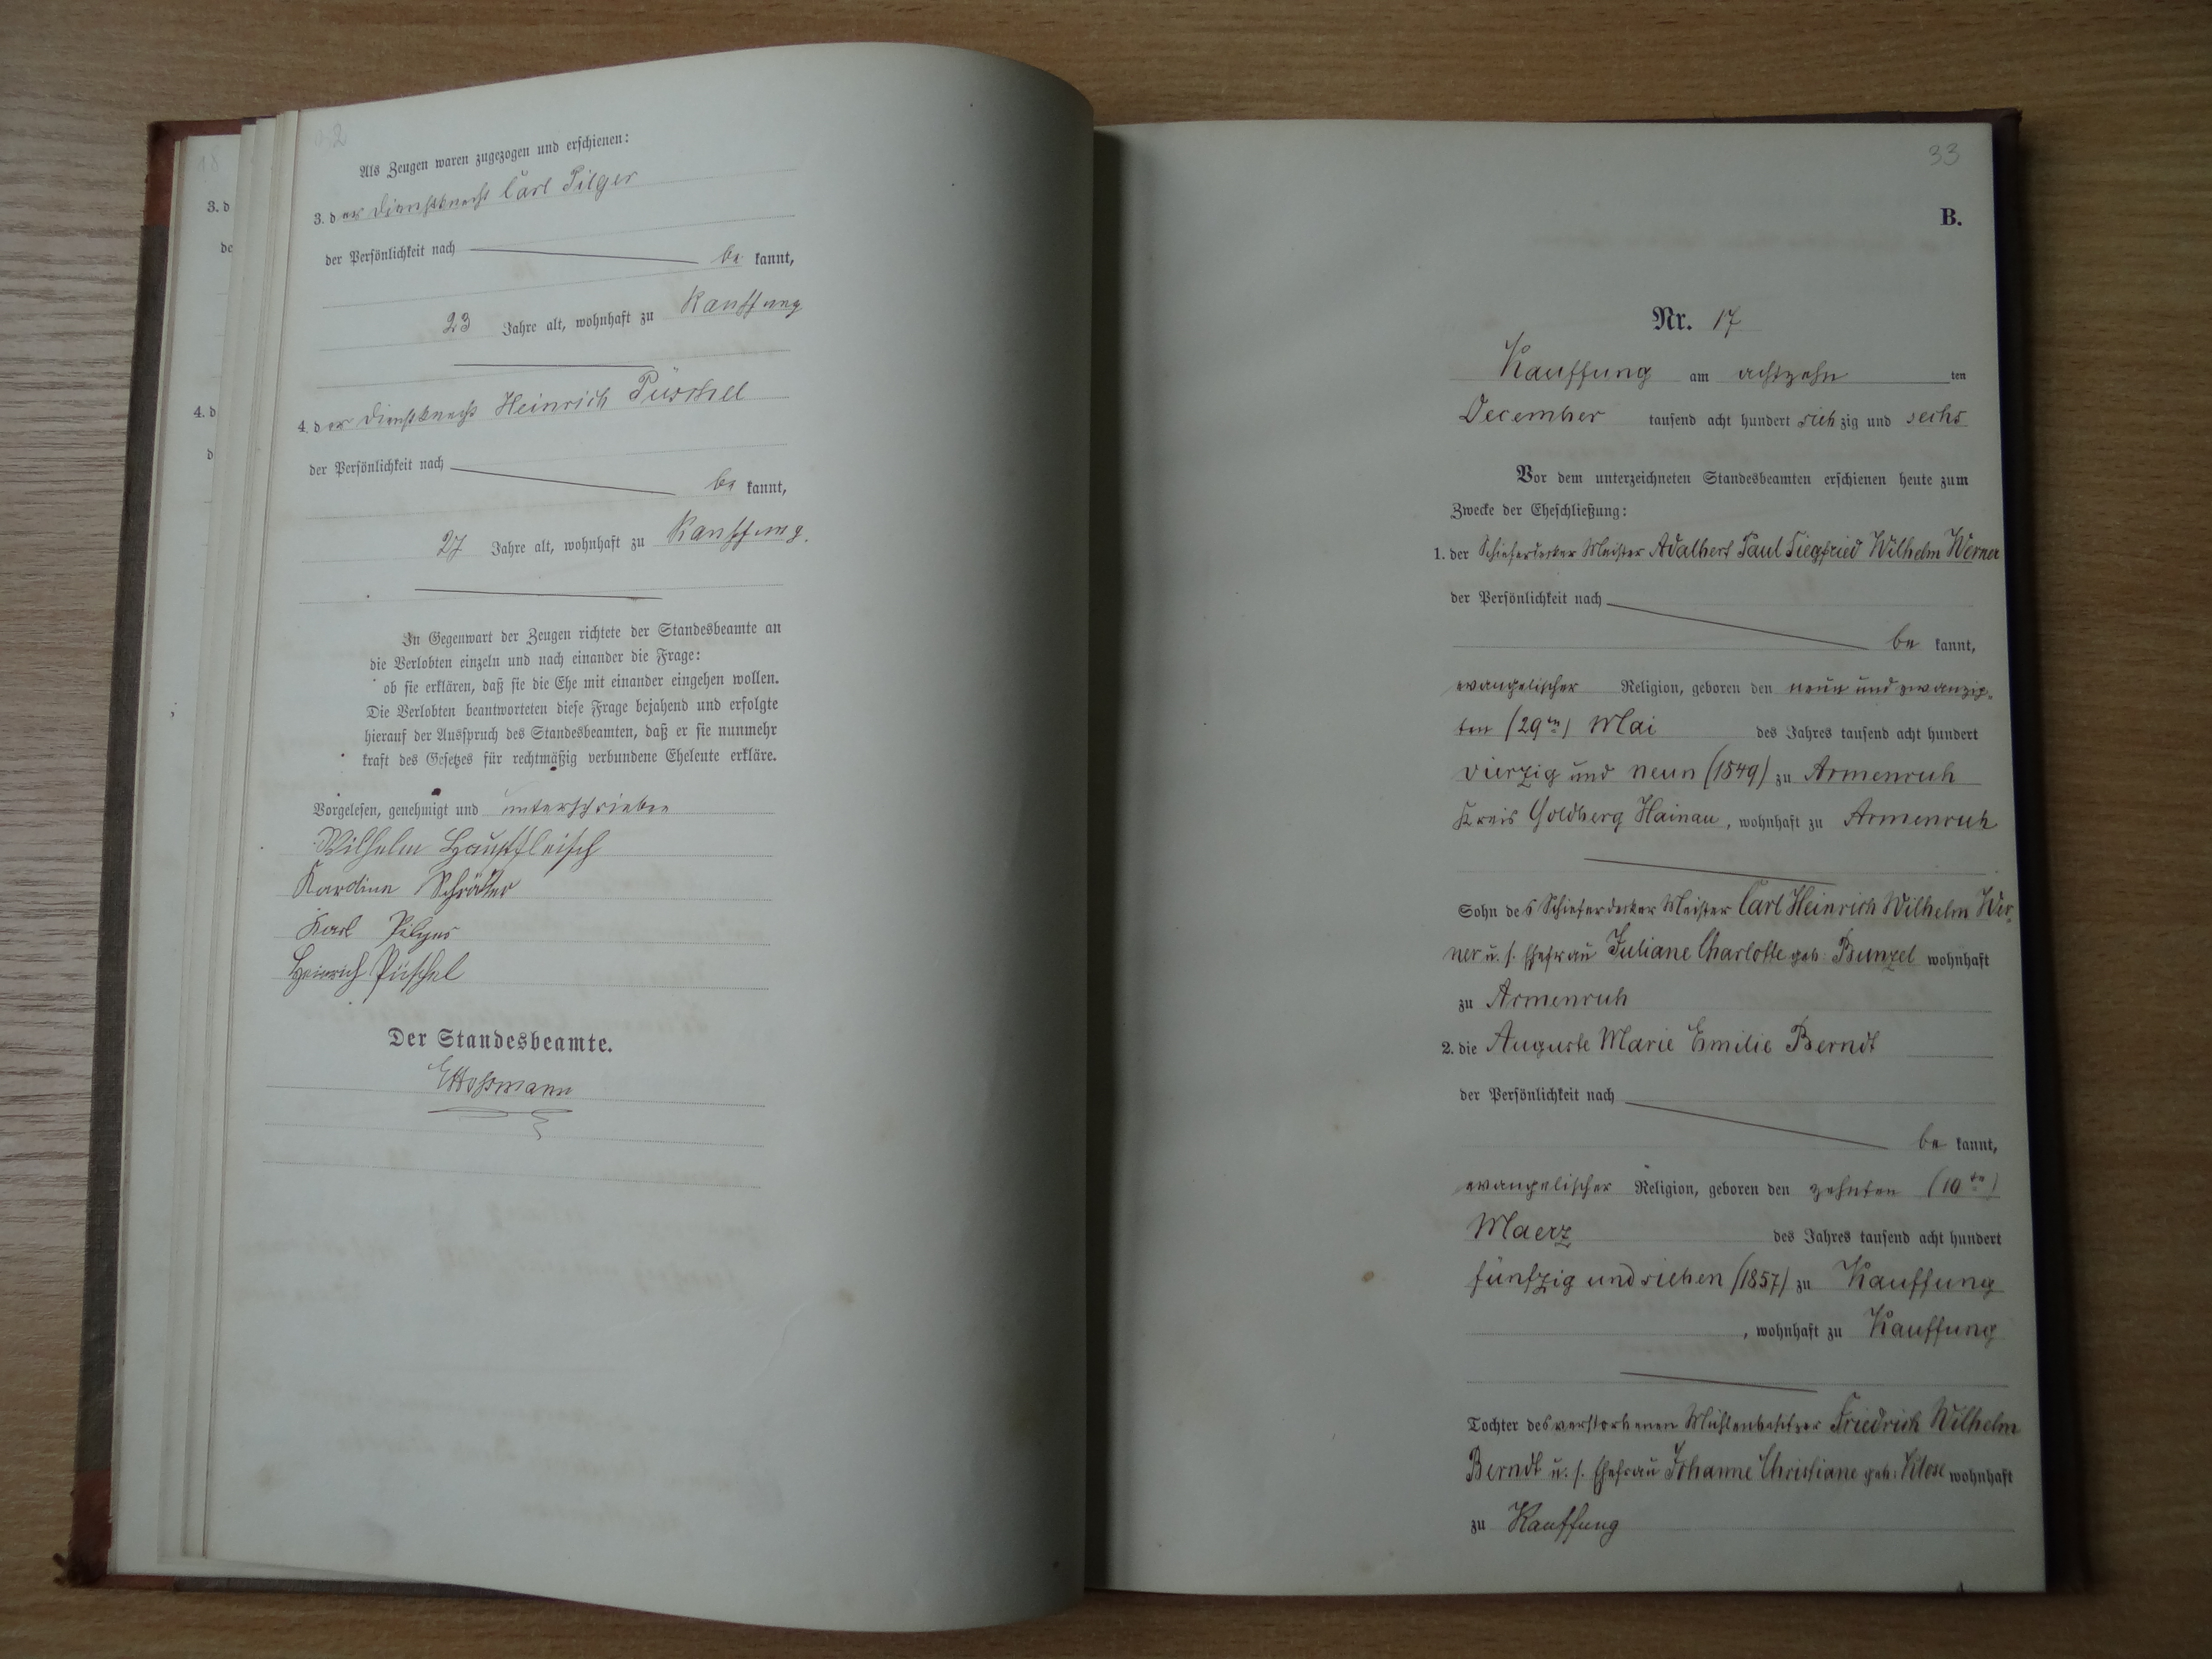 2
Als Zeugen waren zugezogen und erschienen:
3. der Dienstknecht Carl Pilger
der Persönlichkeit nach
be kannt,
23 Jahre alt, wohnhaft zu Kauffung
4. der Dienstknecht Heinrich Püschel
der Persönlichkeit nach
be kannt,
27 Jahre alt, wohnhaft zu Kauffung.
In Gegenwart der Zeugen richtete der Standesbeamte an
die Verlobten einzeln und nach einander die Frage:
ob sie erklären, daß sie die Ehe mit einander eingehen wollen.
Die Verlobten beantworteten diese Frage bejahend und erfolgte
hierauf der Ausspruch des Standesbeamten, daß er sie nunmehr
kraft des Gesetzes für rechtmäßig verbundene Eheleute erkläre.
Vorgelesen, genehmigt und unterschrieben
Wilhelm Hauptfleisch
Karoline Schräter
Karl Pilger
Heinrich Püschel
Der Standesbeamte.
18
3. d
de
4. d
d
33
B.
Nr. 17
Kauffung am achtzehn ten
December tausend acht hundert sieb zig und sechs
Vor dem unterzeichneten Standesbeamten erschienen heute zum
Zwecke der Eheschließung:
1. der Schieferdecker Meister Adalbert Paul Siegfried Wilhelm Werner
der Persönlichkeit nach
be kannt,
evangelischer Religion, geboren den neun und zwanzig-
ten (29ten) Mai des Jahres tausend acht hundert
vierzig und neun (1849) zu Armenruh
Kreis Goldberg Hainau, wohnhaft zu Armenruh
Sohn des Schieferdecker Meister Carl Heinrich Wilhelm Wer-
ner u. s. Ehefrau Juliane Charlotte geb: Bunzel wohnhaft
zu Armenruh
2. die Auguste Marie Emilie Berndt
der Persönlichkeit nach
be kannt,
evangelischer Religion, geboren den zehnten (10ten)
Maerz des Jahres tausend acht hundert
fünfzig und sieben (1857) zu Kauffung
, wohnhaft zu Kauffung
Tochter des verstorbenen Mühlenbesitzer Friedrich Wilhelm
Berndt u. s. Ehefrau Johanne Christiane geb: Klose wohnhaft
zu Kauffung